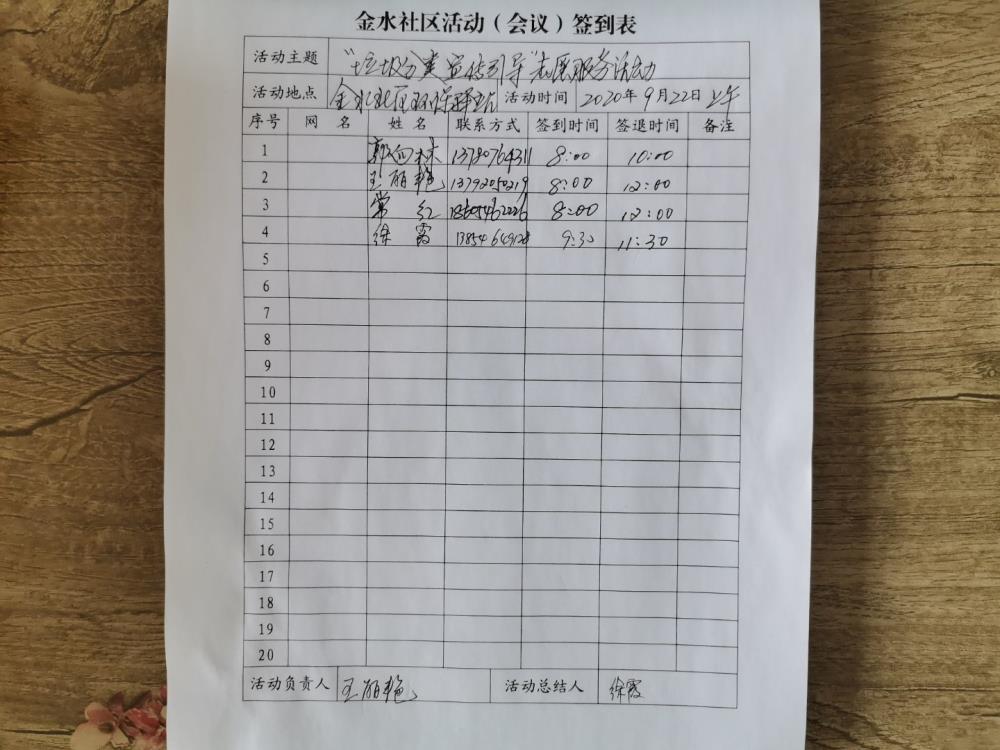 金水社区活动（会议）签到表
活动主题 “垃圾分类宣传引导”志愿服务活动
活动地点 金水社区环保驿站 活动时间 2020年9月22日上午
序号 网 名 姓 名 联系方式 签到时间 签退时间 备注
1 郭向林 8:00 10:00
2 王丽艳 13792050219 8:00 12:00
3 常红 8:00 12:00
4 徐霞 9:30 11:30
5
6
7
8
9
10
11
12
13
14
15
16
17
18
19
20
活动负责人 王丽艳 活动总结人 徐霞